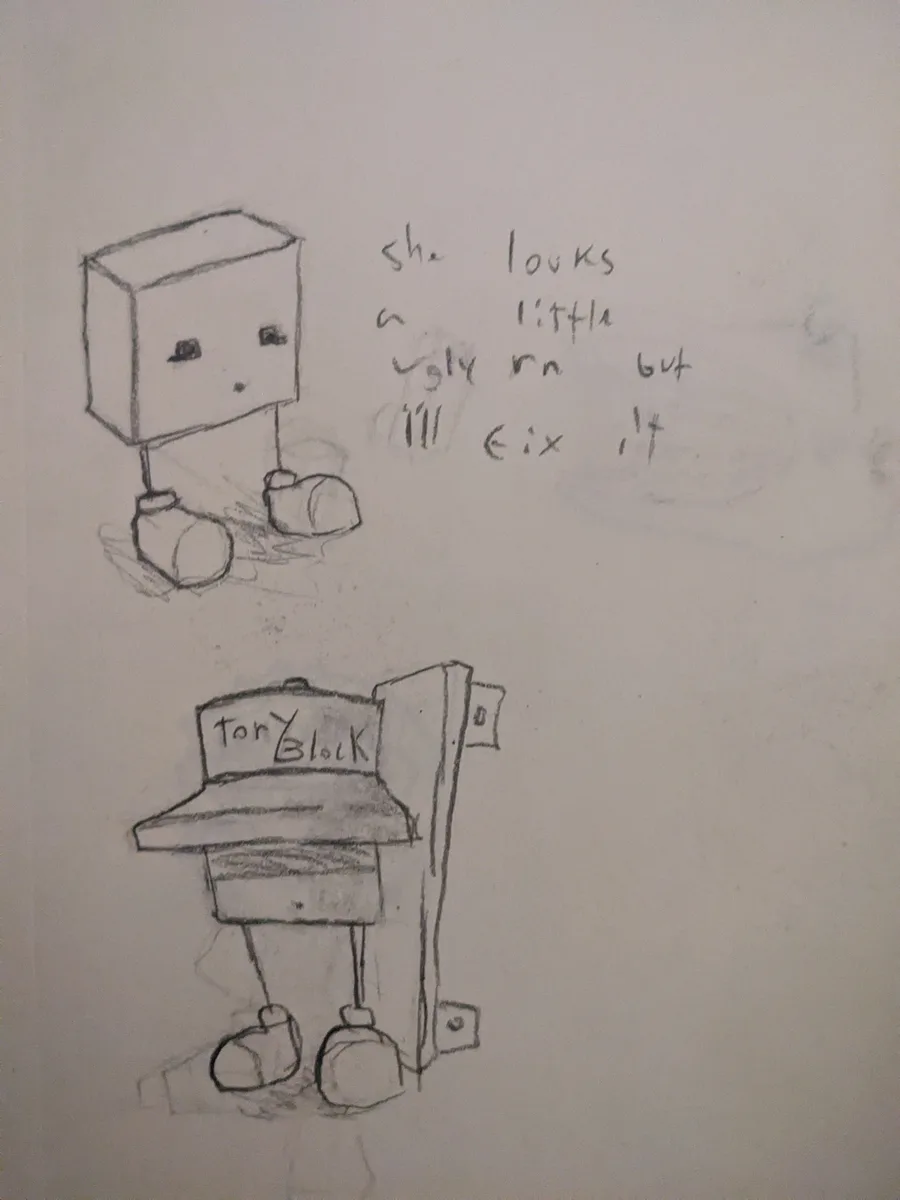 she looks
a little
ugly rn but
i'll fix it
tony
Block